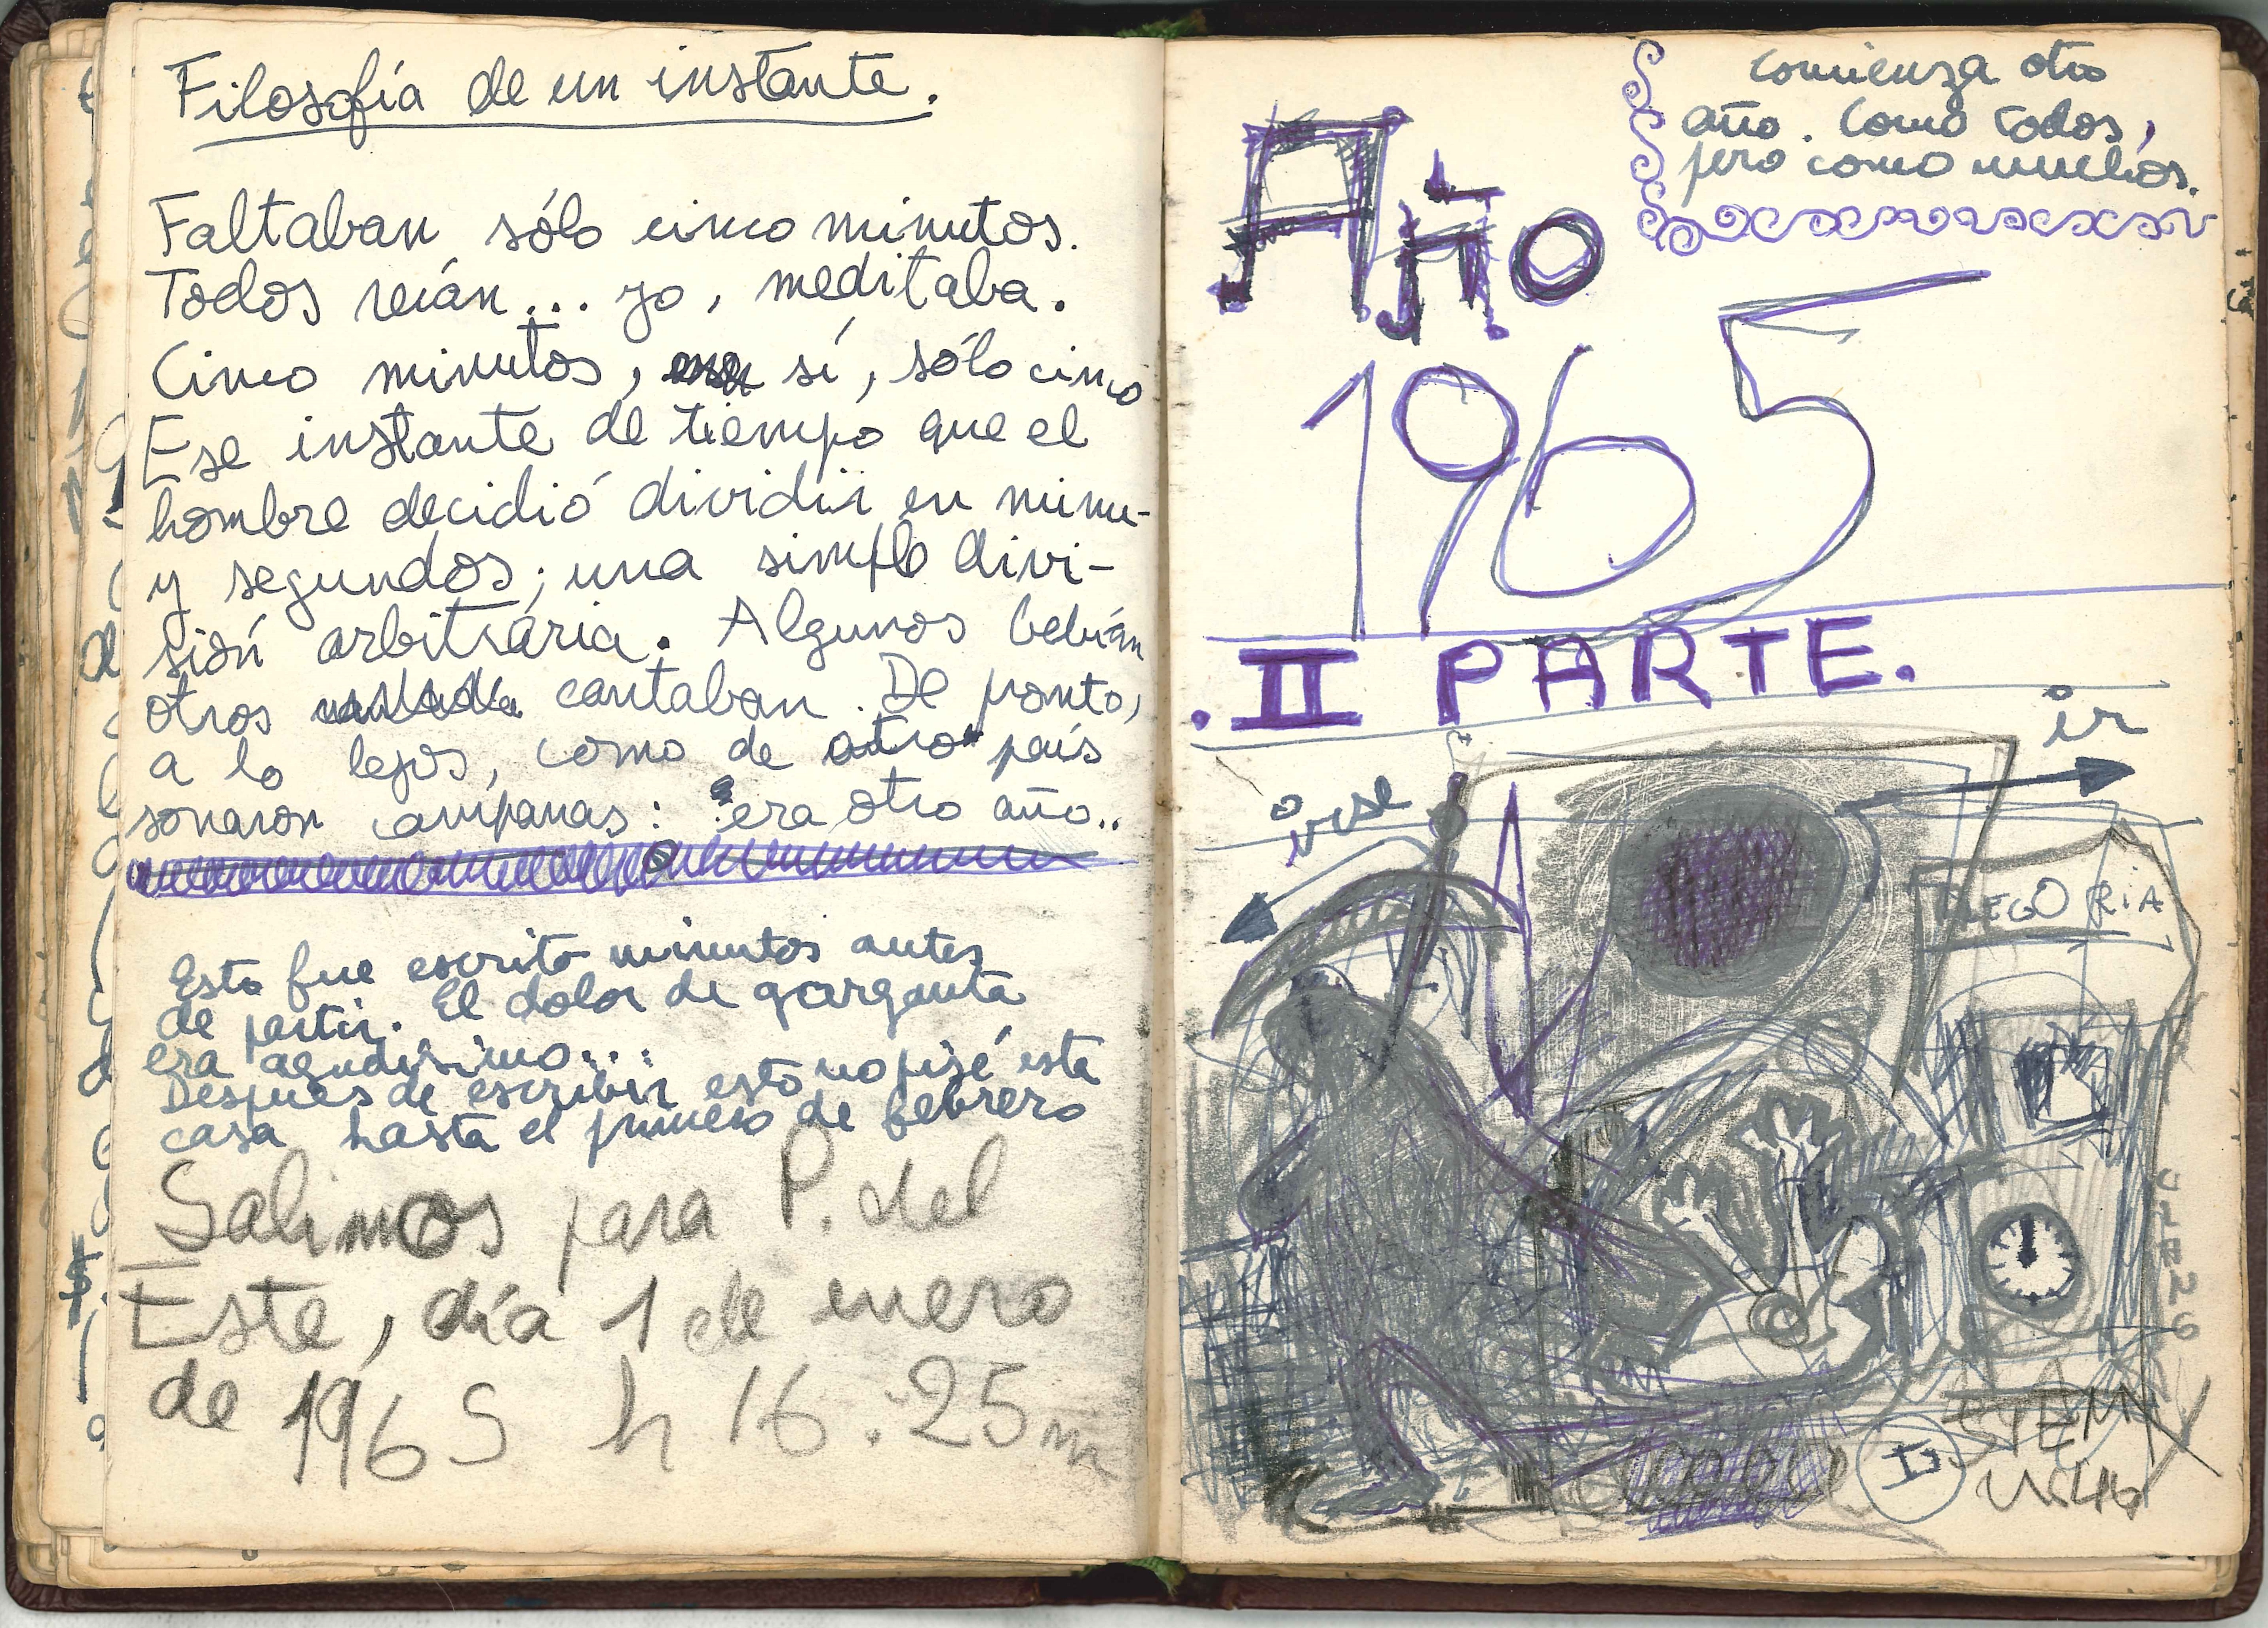 Filosofía de un instante.
Faltaban sólo cinco minutos.
Todos reían... yo, meditaba.
Cinco minutos, sí, sólo cinco
Ese instante de tiempo que el
hombre decidió dividir en minu-
y segundos; una simple divi-
sión arbitraria. Algunos bebían
otros cantaban. De pronto,
a lo lejos, como de otro país
sonaron campanas: era otro año..
Esto fue escrito minutos antes
de partir. El dolor de garganta
era agudísimo...
Después de escribir esto no pisé esta
casa hasta el primero de febrero
Salimos para P. del
Este, día 1 de enero
de 1965 h 16:25m
comienza otro
año. Como todos,
pero como muchos.
Año
1965
.II PARTE.
ir
irse